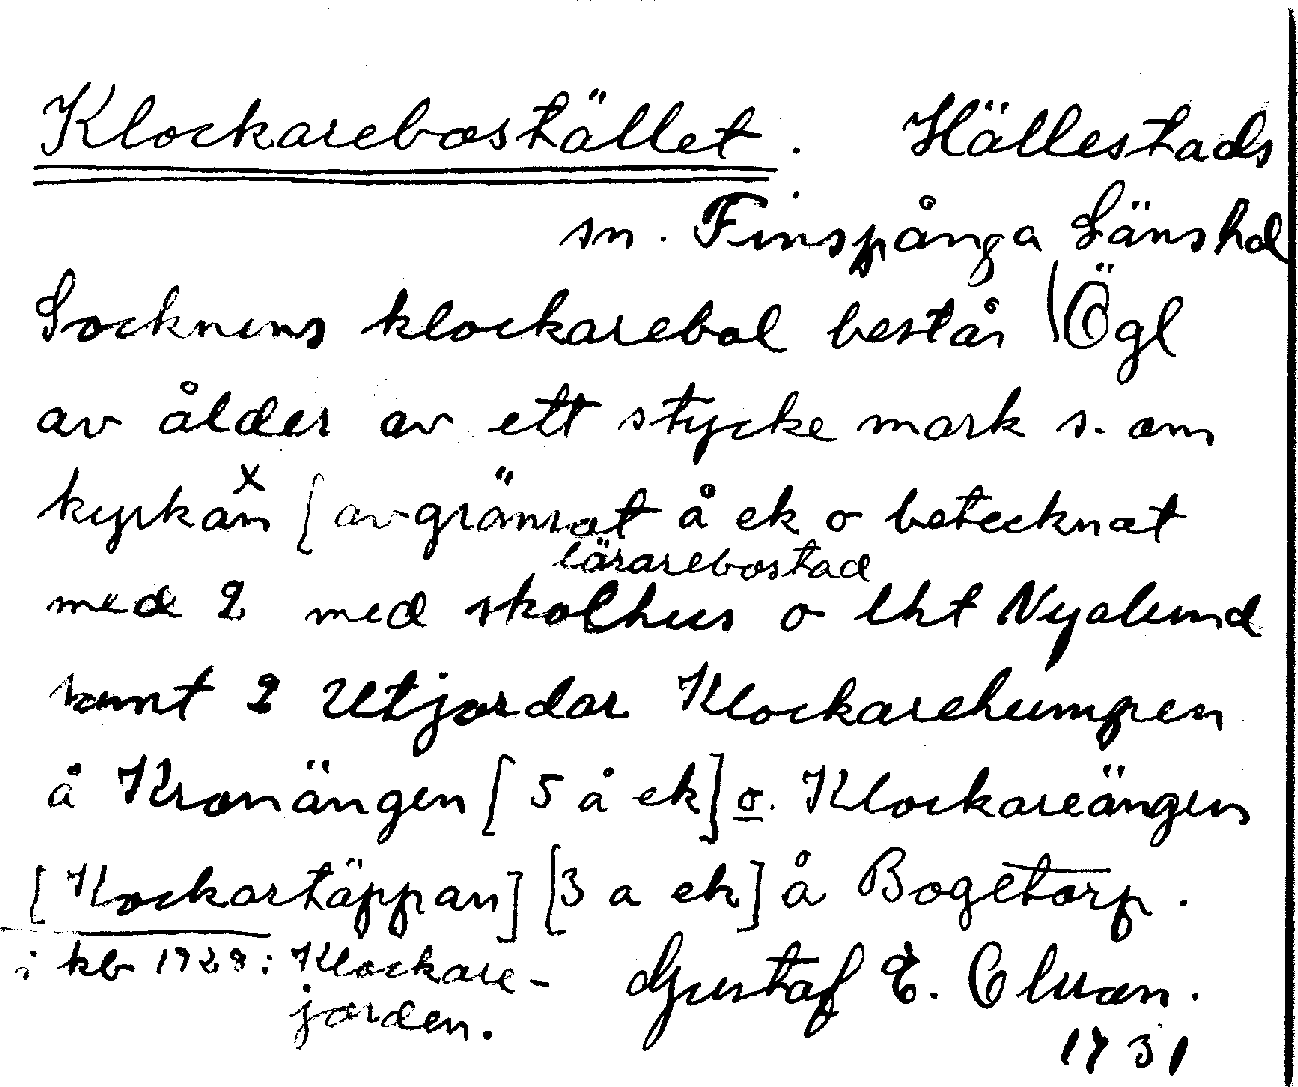 Klockarebostället. Hällestads
sn. Finspånga Länshd
Socknens klockarebol består (Ögl
av ålder av ett stycke mark s. om
kyrkan x [avgränsat å ek o betecknat
lärarebostad
med 2 med skolhus o lht Nyalund
samt 2 Utjordar Klockarehumpen
å Kronängen [5 å ek] o. Klockareängen
[Klockartäppan] [3 a ek] å Bogetorp.
i kb 1728: Klockare-
jorden.
Gustaf E.
1931